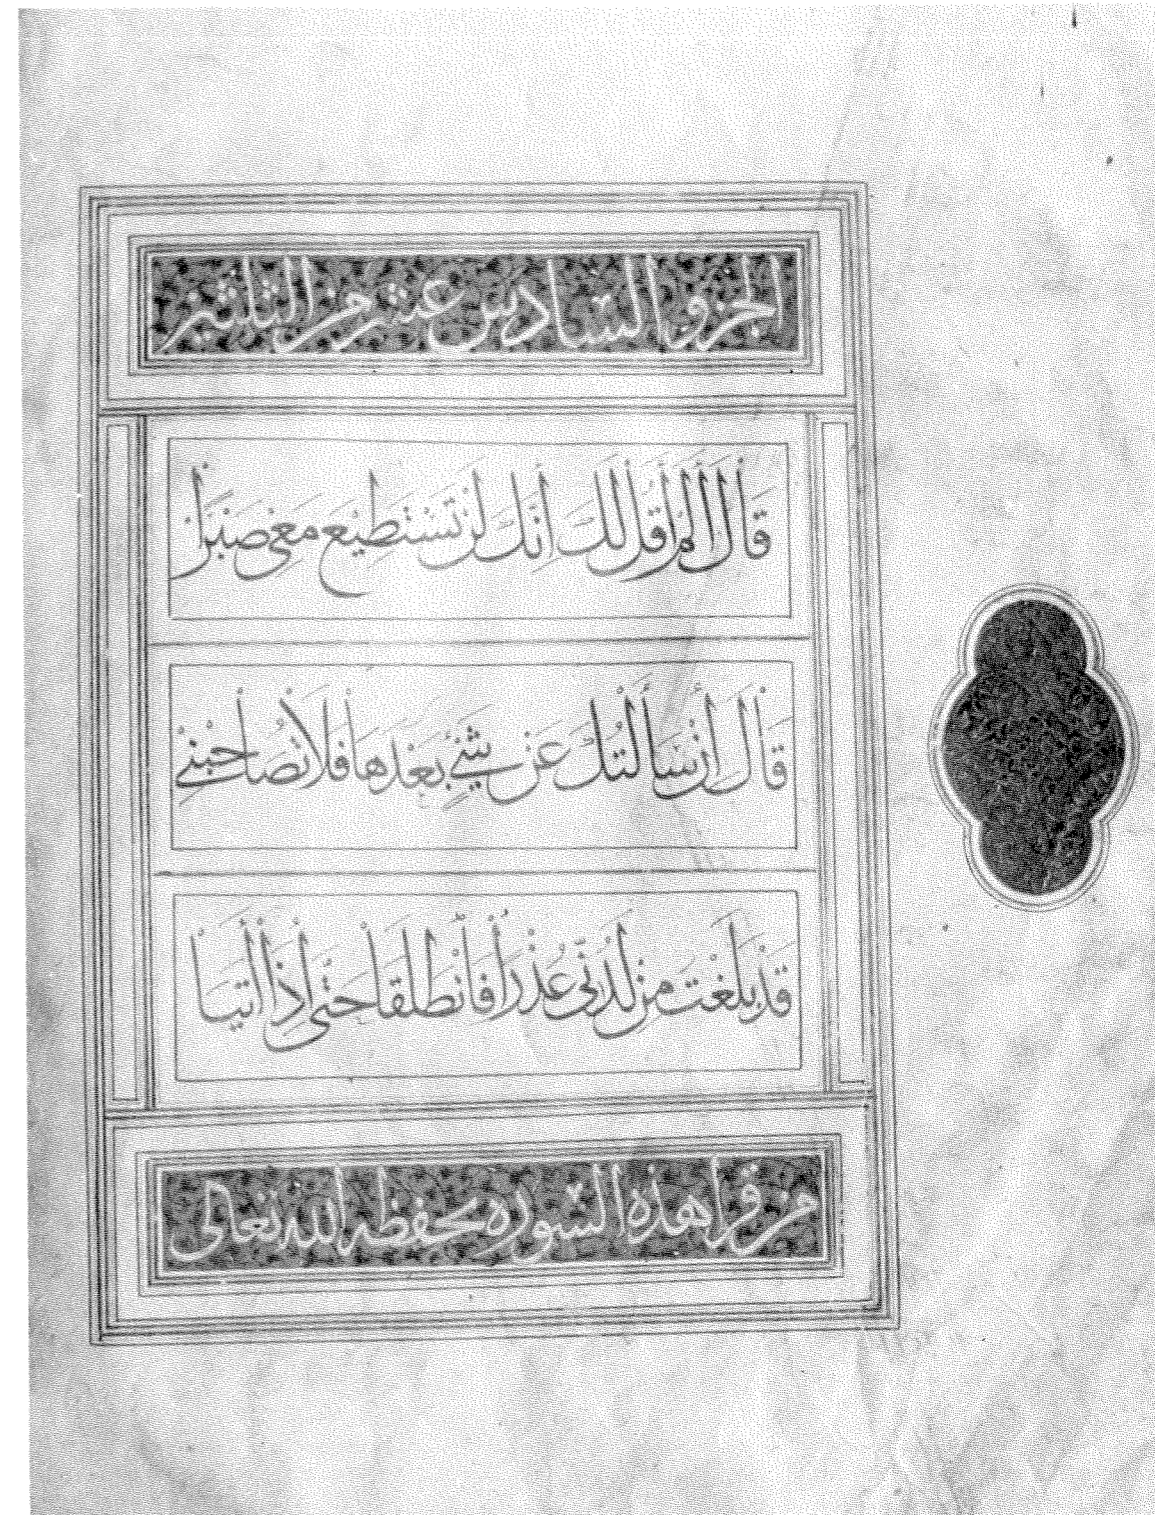 الجزو السادس عشر من الثلثين
قَالَ أَلَمْ أَقُل لَّكَ اِنَّكَ لَنْ تَسْتَطِيعَ مَعِيَ صَبْرًا
قَالَ اِنْ سَأَلْتُكَ عَنْ شَيْءٍ بَعْدَهَا فَلَا تُصَاحِبْنِي
قَدْ بَلَغْتَ مِنْ لَدُنِّي عُذْرًا فَانْطَلَقَا حَتَّى اِذَا أَتَيَا
من قرا هذه السوره يحفظه الله تعالى